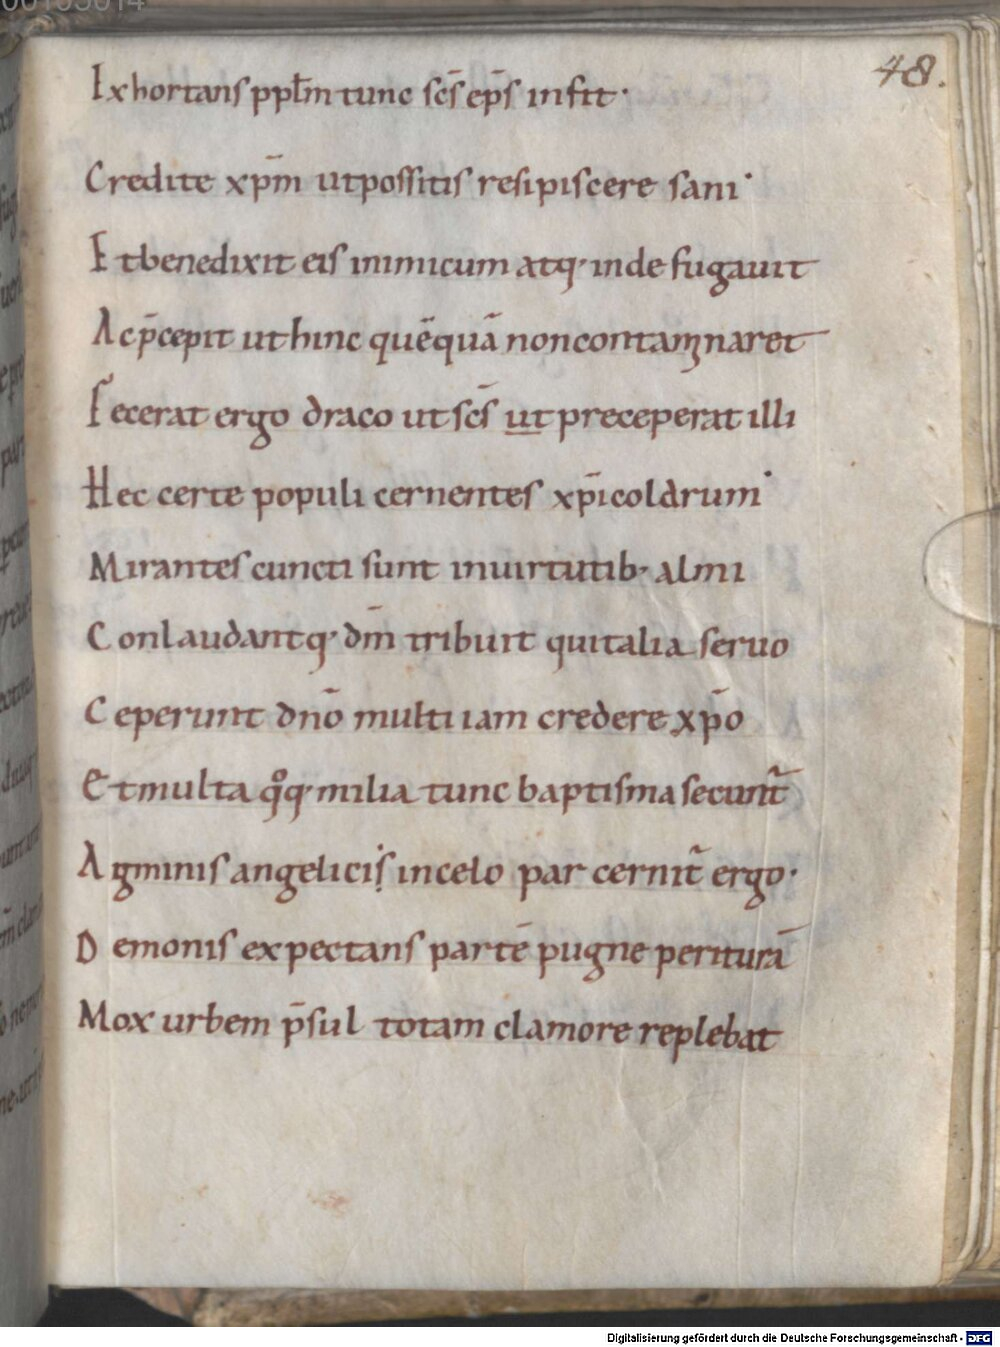 00103014
48.
Exhortans pplm̄ tunc sc̄s ep̄s infit·
Credite xp̄m ut possitis resipiscere sani·
Et benedixit eis inimicum atq· inde fugauit
Ac p̄cepit ut hinc quēquā non contamnaret
Fecerat ergo draco ut sc̄s ut preceperat illi
Hec certe populi cernentes xp̄icolarum·
Mirantes cuncti sunt in uirtutib· almi
Conlaudantq· dm̄ tribuit qui talia seruo
Ceperunt dn̄o multi iam credere xp̄o
Et multa qͦq· milia tunc baptisma secunt̄
Agminis angelicis in celo par cernit̄ ergo·
Demonis expectans partē pugne periturā
Mox urbem p̄sul totam clamore replebat
Digitalisierung gefördert durch die Deutsche Forschungsgemeinschaft - DFG